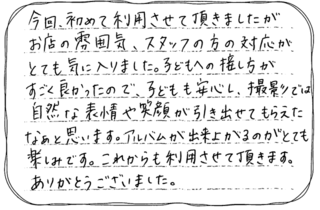 今回、初めて利用させて頂きましたが
お店の雰囲気、スタッフの方の対応が
とても気に入りました。子どもへの接し方が
すごく良かったので、子どもも安心し、撮影では
自然な表情や笑顔が引き出せてもらえた
なぁと思います。アルバムが出来上がるのがとても
楽しみです。これからも利用させて頂きます。
ありがとうございました。